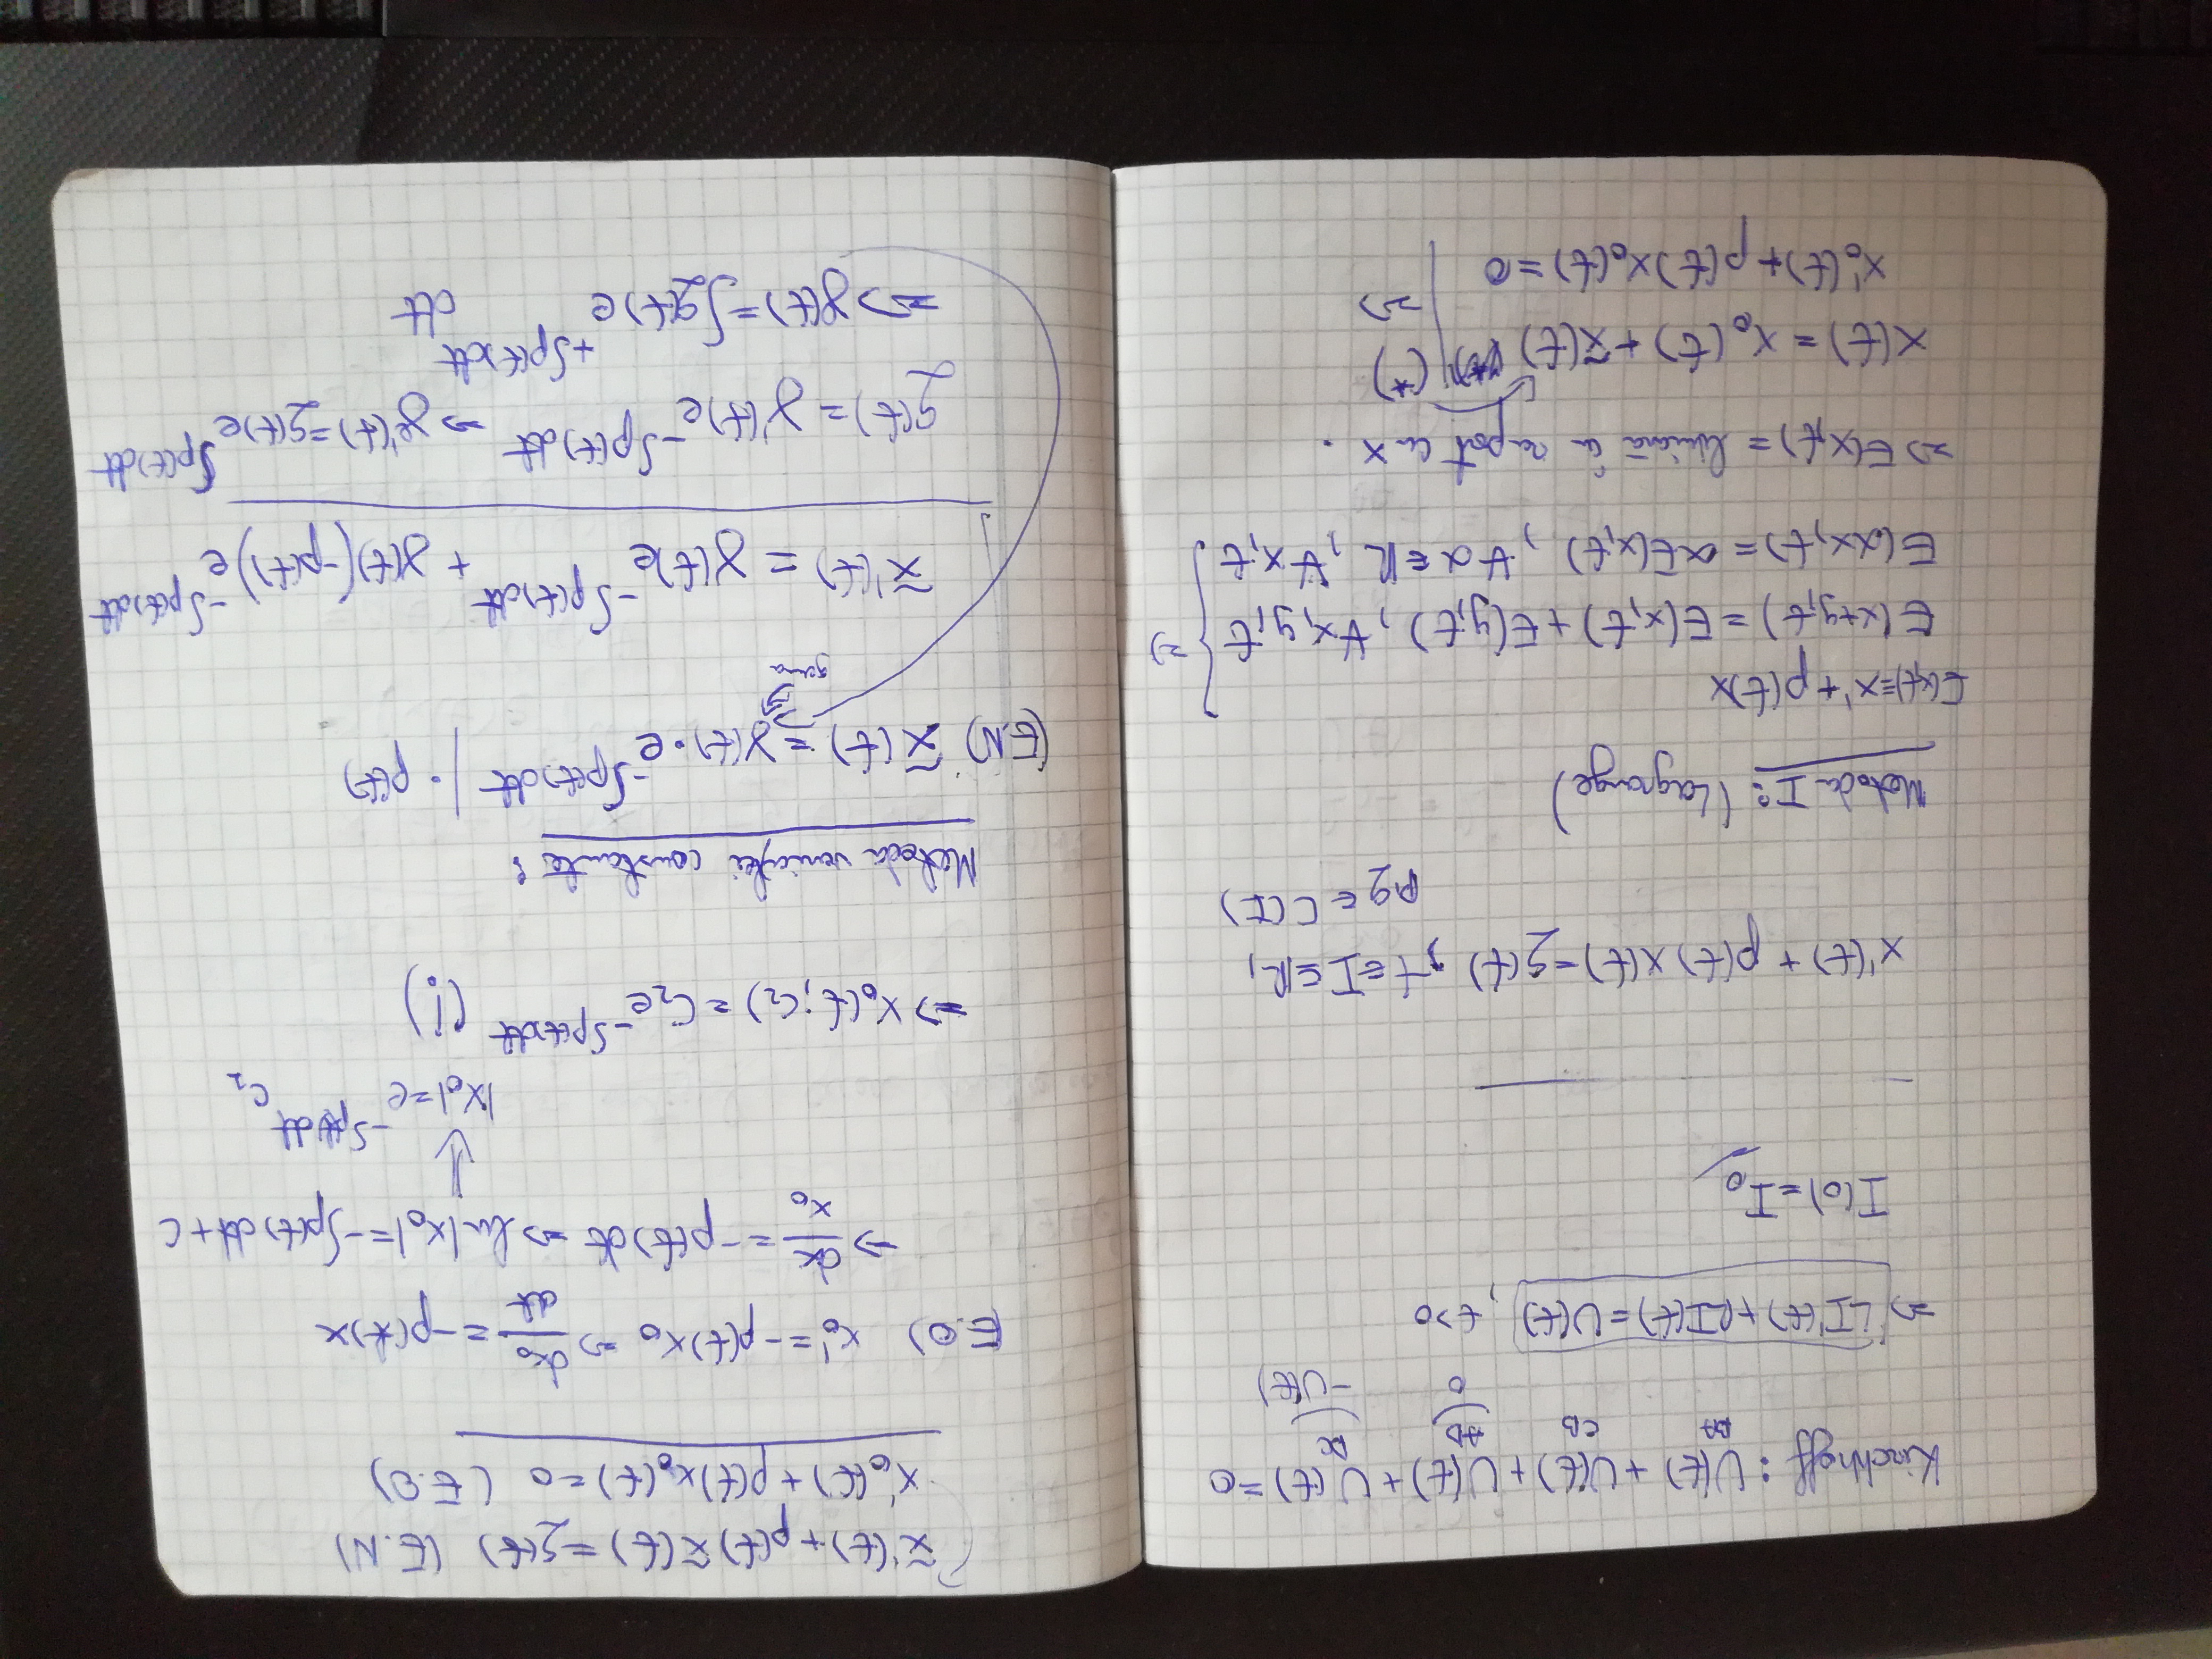 Kirchhoff : U(t) + U(t) + U(t) + U(t) = 0
BA CB AD DC
0 -U(t)
=> LI'(t) + RI(t) = U(t) , t>0
I(0) = I₀
x'(t) + p(t)x(t) = q(t) , t ∈ I ⊆ R,
p,q ∈ C(I)
Metoda I: (Lagrange)
E(x,t) ≡ x' + p(t)x
E(x+y,t) = E(x,t) + E(y,t), ∀x,y,t
E(αx,t) = αE(x,t) , ∀α∈R, ∀x,t } =>
=> E(x,t) = liniară în raport cu x.
x(t) = x₀(t) + x̃(t) (*)
x₀'(t) + p(t)x₀(t) = 0 | =>
x̃'(t) + p(t)x̃(t) = q(t) (E.N)
x₀'(t) + p(t)x₀(t) = 0 (E.O)
(E.O) x₀' = -p(t)x₀ => dx₀/dt = -p(t)x
=> dx/x₀ = -p(t)dt => ln|x₀| = -∫p(t)dt + C
⇓
|x₀| = e^-∫p(t)dt C₁
=> x₀(t; C₂) = C₂e^-∫p(t)dt (i)
Metoda variației constantei :
(E.N) x̃(t) = γ(t)·e^-∫p(t)dt | · p(t)
gama
x̃'(t) = γ'(t)e^-∫p(t)dt + γ(t)(-p(t))e^-∫p(t)dt
q(t) = γ'(t)e^-∫p(t)dt => γ'(t) = q(t)e^∫p(t)dt
=> γ(t) = ∫q(t)e^+∫p(t)dt dt